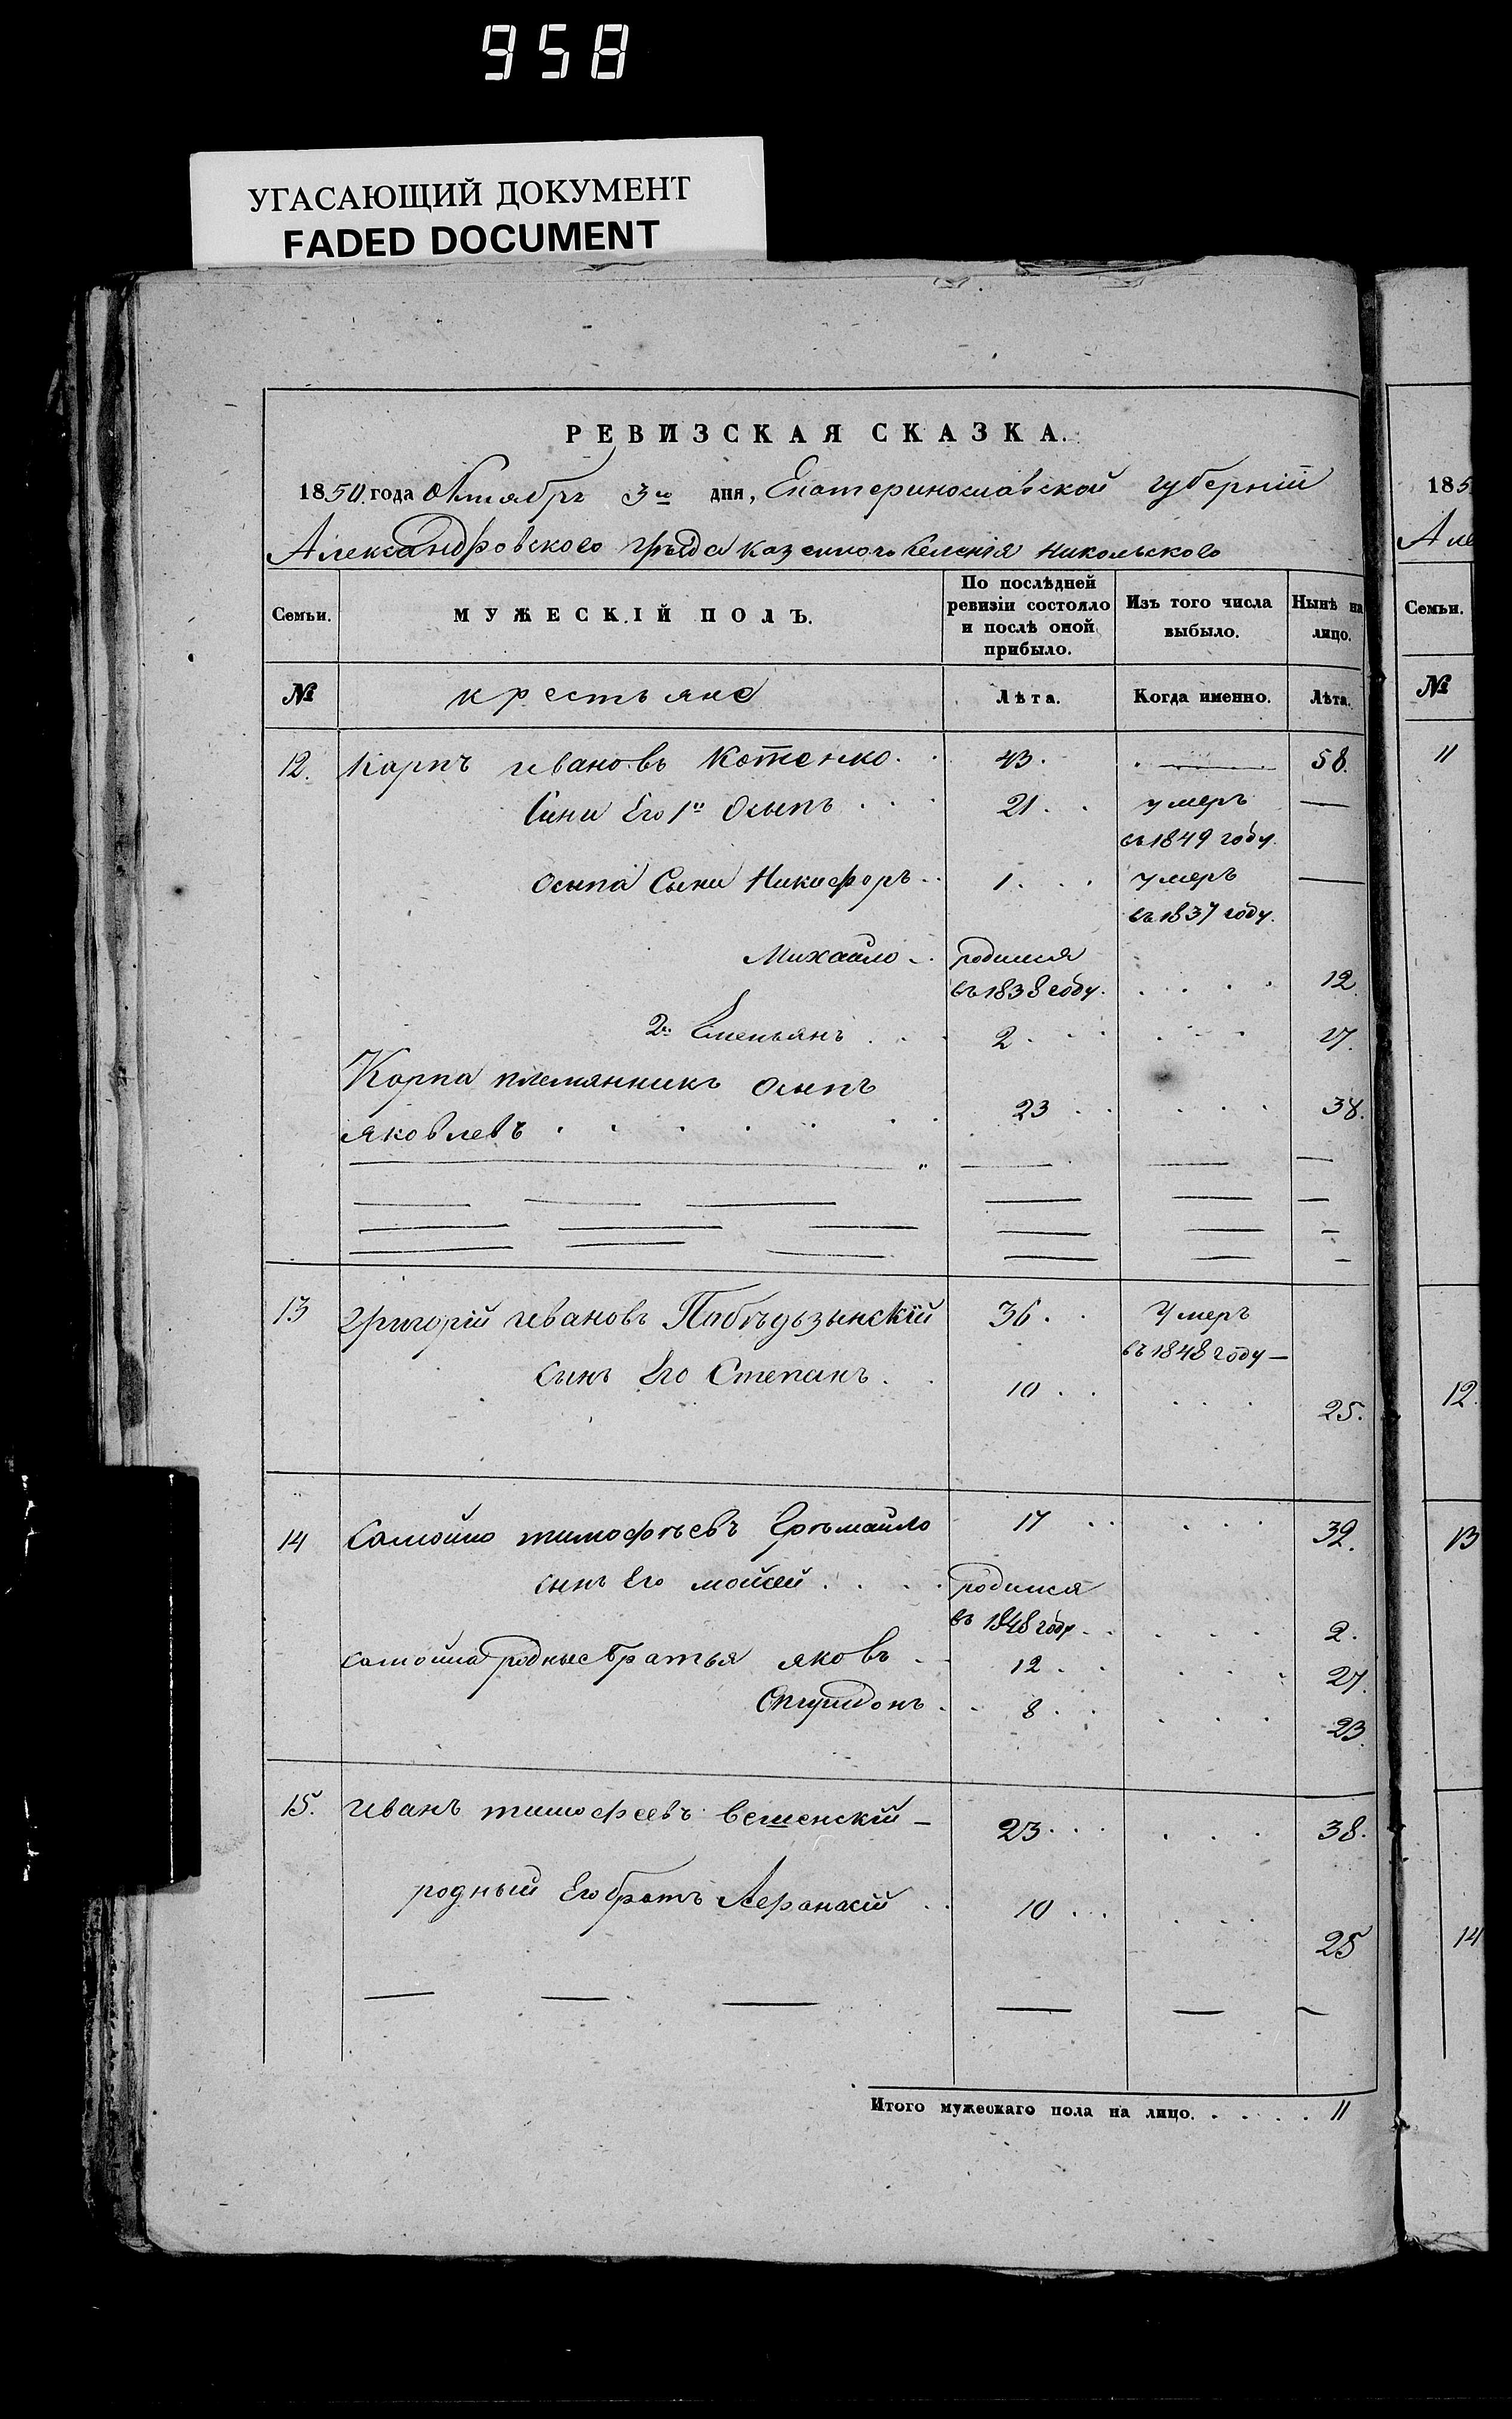 958
УГАСАЮЩИЙ ДОКУМЕНТ
FADED DOCUMENT
РЕВИЗСКАЯ СКАЗКА.
1850 года Октября 3го дня, Екатеринославской губерніи
Александровского уѣзда казенного селенія Никольского
Семьи. МУЖЕСКІЙ ПОЛЪ. По послѣдней ревизіи состояло и послѣ оной прибыло. Изъ того числа выбыло. Нынѣ на лицо.
№ крестьяне Лѣта. Когда именно. Лѣта.
12. Карпъ Ивановъ Котенко 43. 58.
Сини Его 1й Осыпъ 21. умеръ
въ 1849 году.
Осыпа Сыни Никифоръ 1. умеръ
въ 1837 году.
Михайло родился
въ 1838 году. 12.
2й Емельянъ 2 17.
Карпа племянникъ Осыпъ
Яковлевъ 23 38.
13 Григорій Ивановъ 36. Умеръ
въ 1848 году
Сынъ Его Степанъ 10 25.
14 Самойло Тимофѣевъ 17 32.
сынъ Его Мойсей родился
въ 1848 году 2.
Самойла родные братья Яковъ 12. 27.
Спиридонъ 8. 23.
15. Иванъ Тимофеевъ Вешенскій 23 38.
родный Его братъ 10 25
Итого мужескаго пола на лицо. 11
185
Але
Семьи.
№
11
12.
13
14